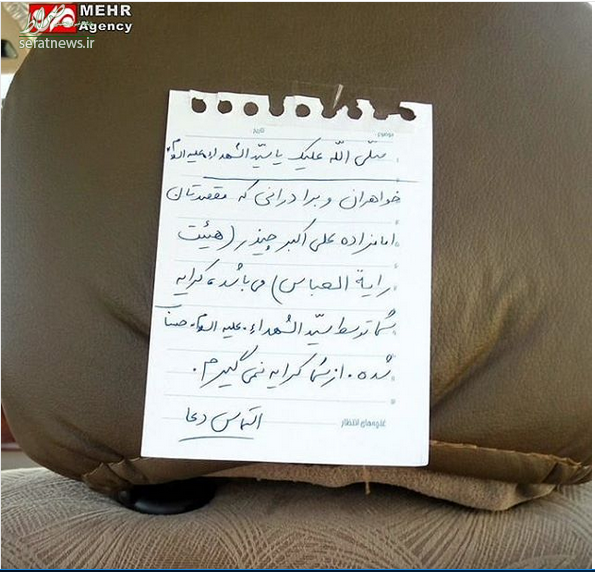 MEHR
Agency
seratnews.ir
تاریخ
موضوع
صلّی الله علیک یا سیّد الشهداء علیه السلام
خواهران و برادرانی که مقصدتان
امامزاده علی اکبر چیذر (هیئت
رایة العباس) می باشد، کرایه
شما توسط سیّد الشهداء علیه السلام حساب
شده. از شما کرایه نمی گیرم.
التماس دعا